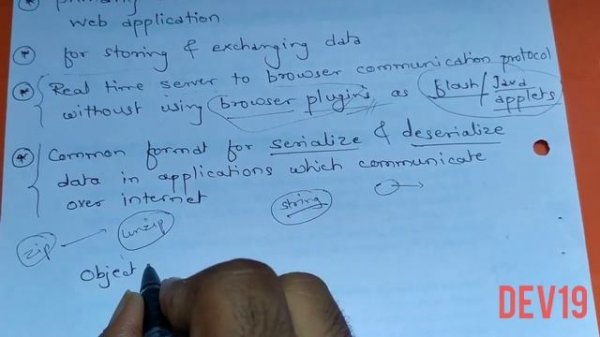 web application
for storing & exchanging data
Real time server to browser communication protocol
withoust using browser plugins as flash/Java applets
Common format for serialize & deserialize
data in applications which communicate
over internet
string
zip → unzip
Object
DEV19